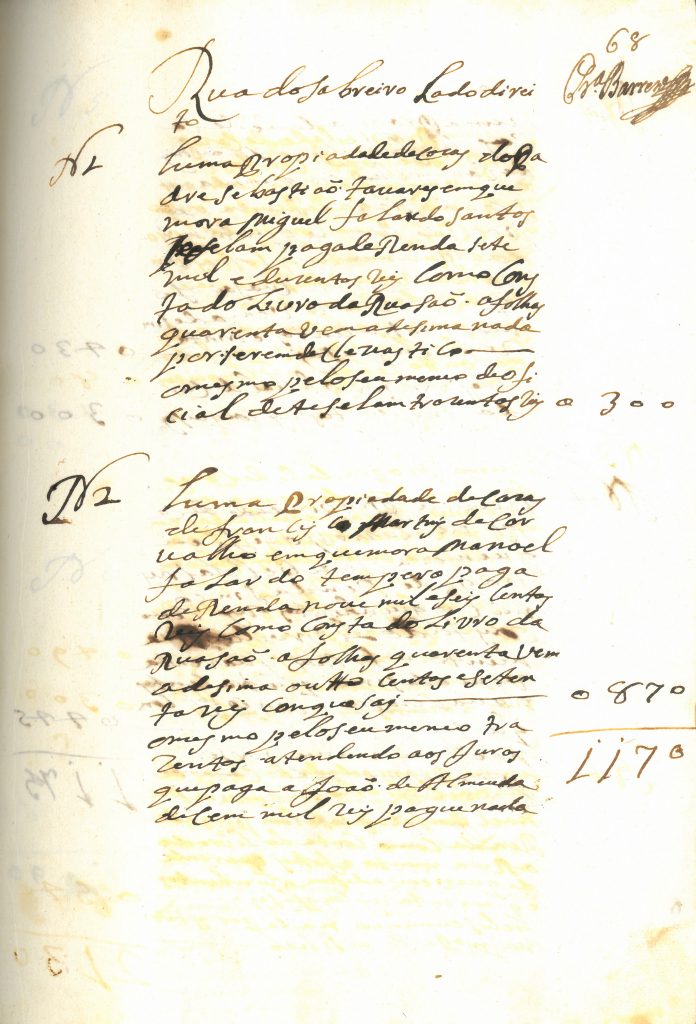 68
Rua do sabreiro Lado direi
to
N 1
huma propriadade de cazas do Pa
dre sebastiaõ tavares em que
mora Miguel falardo santos
selam paga de Renda sete
mil e duzentos reis Como Cons
ta do Livro da Ruasaõ a folhas
quarenta vem a desima nada
por ser em de Clevastico
o mesmo pelo seu meneo de ofi
cial de teselam trozentos reis 0 300
N 2
huma Propiedade de cazas
de francisco Martins de Car
valho em que mora Manoel
falardo tempero paga
de Renda nove mil e seis Centos
reis Como Consta do Livro da
Ruasaõ a folhas quarenta vem
a desima outto Centos e seten
ta reis Con que sai 0 870
o mesmo pelo seu meneo tra
zentos atendendo aos Juros 1170
que paga a Joaõ de Almeida
de Cem mil reis pague nada